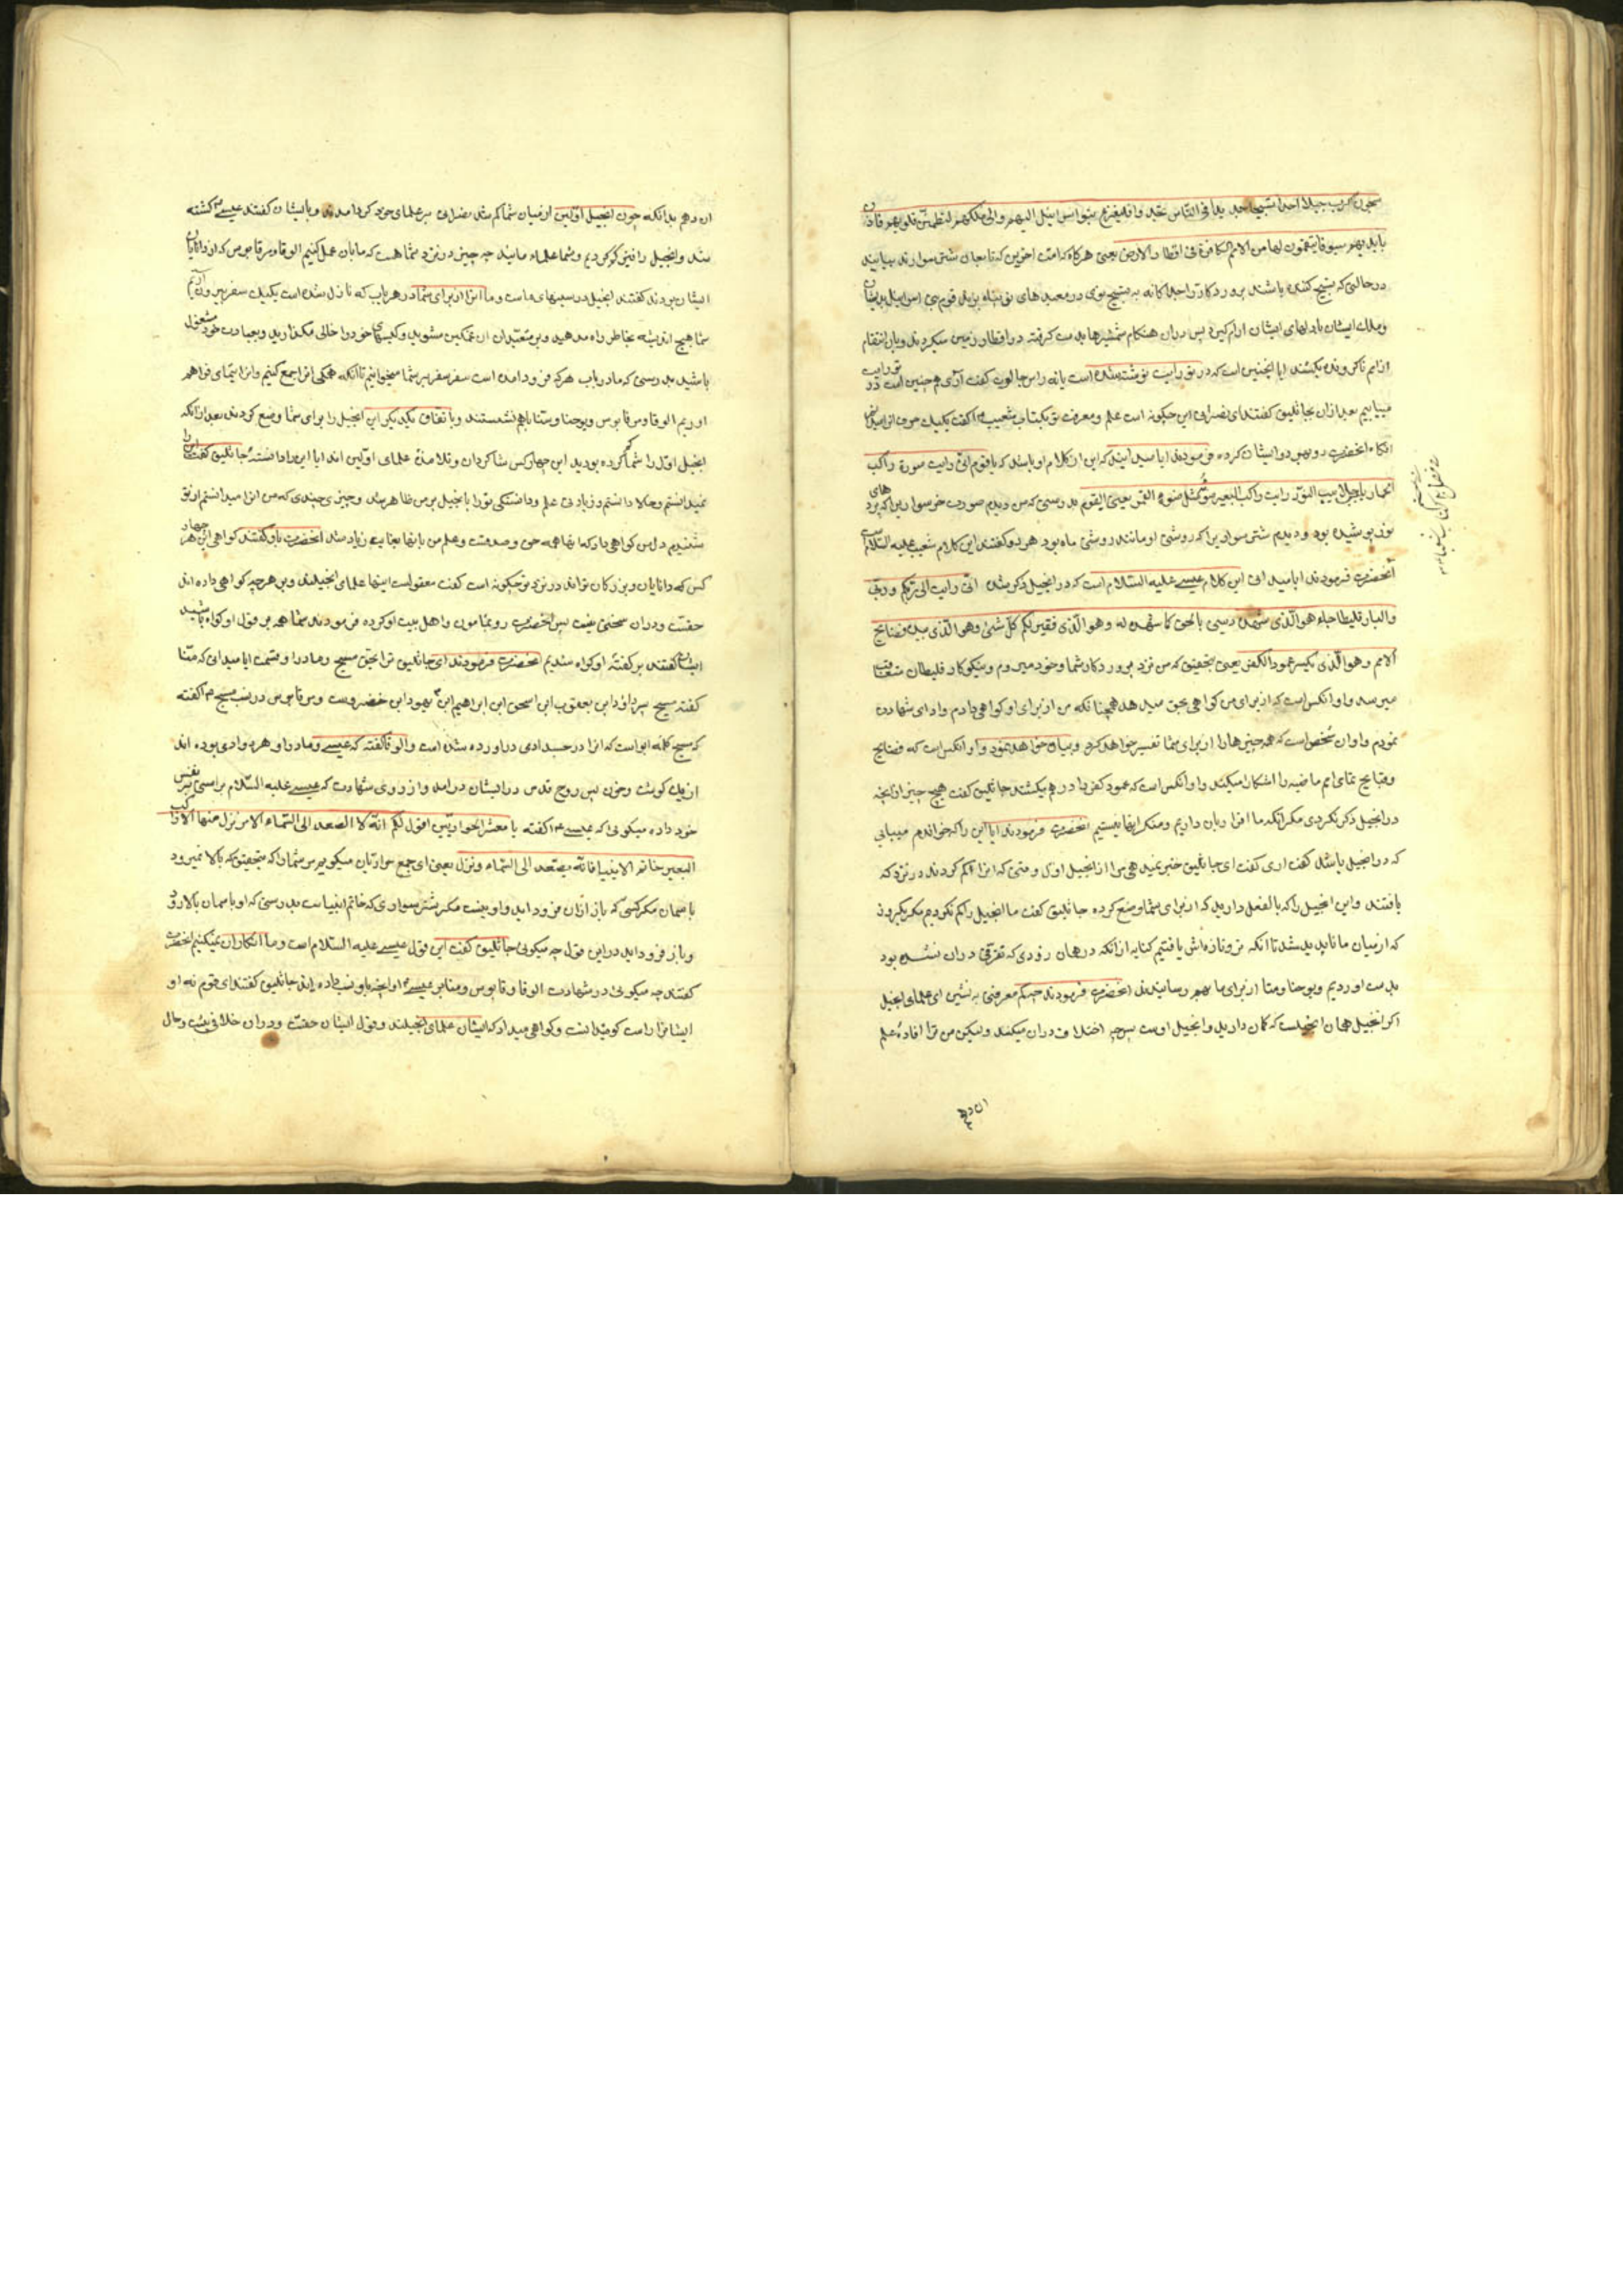 بایدیهم سیوفا ینتقمون بها من الامم الکافرة فی اقطار الارض یعنی هرگاه که امت اخرین که تابعان شتر سوارند بیایند
در حالتی که تسبیح کننده باشند پروردکار را
وملک ایشان تا دلهای ایشان ارام کیرد پس دران هنکام شمشیرها بدست کرفته در اقطار زمین میکردند وبان انتقام
از امم ناکرونده میکشند ایا اینچنین است که در توریت نوشته شده است یا نه راس جالوت کفت آری همچنین است در توریت
مییابیم بعد ازان بجاثلیق کفتند ای نصرانی این چکونه است علم ومعرفت تو بکتاب شعیب ع کفت یکیک حرف انرا میدانم
انکاه انحضرت رو بهر دو ایشان کرده فرمودند ایا میدانید که این از کلام او باشد که یا قوم انی رایت صورة راکب
الحمار لابسا جلابیب النور ورایت راکب البعیر ضوئه مثل ضوء القمر یعنی ای قوم بدرستی که من دیدم صورت خر سواریرا که پردهای
نور پوشیده بود ودیدم شتر سواریرا که روشنی او مانند روشنی ماه بود هر دو کفتند این کلام شعیب علیه السلام است
آنحضرت فرمودند ایا میدانی این کلام عیسی علیه السلام است که در انجیل ذکر شده انی رایت الی ربکم وربی
والبارقلیطا جاء هو الذی شهد رسی بالحق کما شهدت له وهو الذی یفسر لکم کل شیء وهو الذی یبدی فضایح
الامم وهو الذی یکسر عمود الکفر یعنی بتحقیق که من نزد پروردکار شما وخود میروم
میرسد واو انکس است که از برای من کواهی بحق میدهد همچنانکه من از برای او کواهی دادم وادای شهادت
نمودم واو ان شخص است که همه چیزها را از برای شما تفسیر خواهد کرد وبیان خواهد نمود واو انکس است که فضایح
وقبایح تمامی امم ماضیه را اشکارا میکند واو انکس است که عمود کفر را در هم میکشند جاثلیق کفت هیچ چیز از آنچه
در انجیل ذکر نکردی مکر انکه ما اقرار بان داریم ومنکر اینها نیستیم انحضرت فرمودند ایا این را که خواندم مییابی
که در انجیل باشد کفت اری کفت ای جاثلیق خبر نمیدهی مرا از انجیل اول وقتی که انرا کم کردند در نزد که
یافتند واین انجیل را که بالفعل دارید که از برای شما وضع کرده جاثلیق کفت ما انجیل را کم نکردیم مکر یکروز
که از میان ما ناپدید شد تا انکه تر وتازه‌اش یافتیم کنایه از آنکه در همان روزی که تفرقی دران نشده بود
بدست اوردیم ویوحنا ومتا از برای ما بهم رسانیدند انحضرت فرمودند چه کم معرفتی
اکر انجیل همان انجیلست که کمان دارید وانجیل اوست پس چه اختلاف دران میکنند ولیکن من ترا افادهٔ علم
ان دهم
ان دهم بدانکه چون انجیل اولین از میان شما کم شد نصرانی بر علمای خود کرد امدند وبایشان کفتند عیسی ع کشته
شد وانجیل را نیز کم کردیم وشما علماء مائید چه چیز در نزد شما هست که ما بان عمل کنیم الوقا ومرقابوس که از دانایان
ایشان بودند کفتند انجیل در سینهای ماست وما انرا از برای شما در هر باب که نازل شده است یکیک سفر بیرون آریم
شما هیچ اندیشه بخاطر راه مدهید
باشید بدرستی که ما در باب هر که فرود امده است سفر سفر بر شما میخوانیم تا انکه همکی انرا جمع کنیم
اوریم الوقا ومرقابوس ویوحنا ومتا باهم نشستند وباتفاق یکدیکر این انجیل را برای شما وضع کردند بعد ازانکه
انجیل اول را شما کم کرده بودید این چهار کس شاکردان وتلامذهٔ علمای اولین اند ایا این را دانسته‌ٔ جاثلیق کفت این را
نمیدانستم وحالا دانستم وزیادتی علم ودانستکی تو را بانجیل بر من ظاهر شد وچیزی چندی که من انرا میدانستم از تو
شنیدم دل من کواهی داد که اینها همه حق وصدقست وعلم من باینها بغایت زیاد شد انحضرت باو کفتند کواهی این هر چهار
کس که دانایان وبزرکان تواند در نزد تو چکونه است کفت مقبولست اینها علمای انجیلند وبر هر چه کواهی داده اند
حقست ودران سخنی نیست پس انحضرت رو بمامون واهل بیت او کرده فرمودند شما همه بر قول او کواه باشید
ایشان کفتند بر کفته‌ٔ او کواه شدیم انحضرت فرمودند ای جاثلیق ترا بحق مسیح ومادر او قسمت ایا میدانی که متا
کفته مسیح پسر داود ابن یعقوب ابن اسحق ابن ابراهیم ابن یهود ابن خضرونست ومرقابوس در نسب مسیح ع کفته
که مسیح کلمه است که انرا در جسد ادمی در اورده شده است والوقا کفته که عیسی ومادر او هر دو ادمی بوده اند
از یک کوشت وخون پس روح قدس در ایشان درامد واز روی شهادت که عیسی علیه السلام بر نفس
خود داده میکوئی که عیسی ع کفته یا معشر الحواریین اقول لکم انه لا یصعد الی السماء الا من نزل منها الا راکب
البعیر خاتم الانبیاء فانه یصعد الی السماء وینزل یعنی ای جمع حواریان میکویم بر شما را که بتحقیق که بالا نمیرود
باسمان مکر کسی که باز ازان فرود اید واو نیست مکر شتر سواری که خاتم انبیاست بدرستی که او باسمان بالا رود
وباز فرود اید در این قول چه میکوئی جاثلیق کفت این قول عیسی علیه السلام است وما انکار ان نمیکنیم انحضرت
کفتند چه میکوئی در شهادت الوقا وقابوس ومتا بر عیسی ع
ایشانرا راست کو میدانست وکواهی میداد که ایشان علمای انجیلند وقول ایشان حقست ودران خلافی نیست وحال